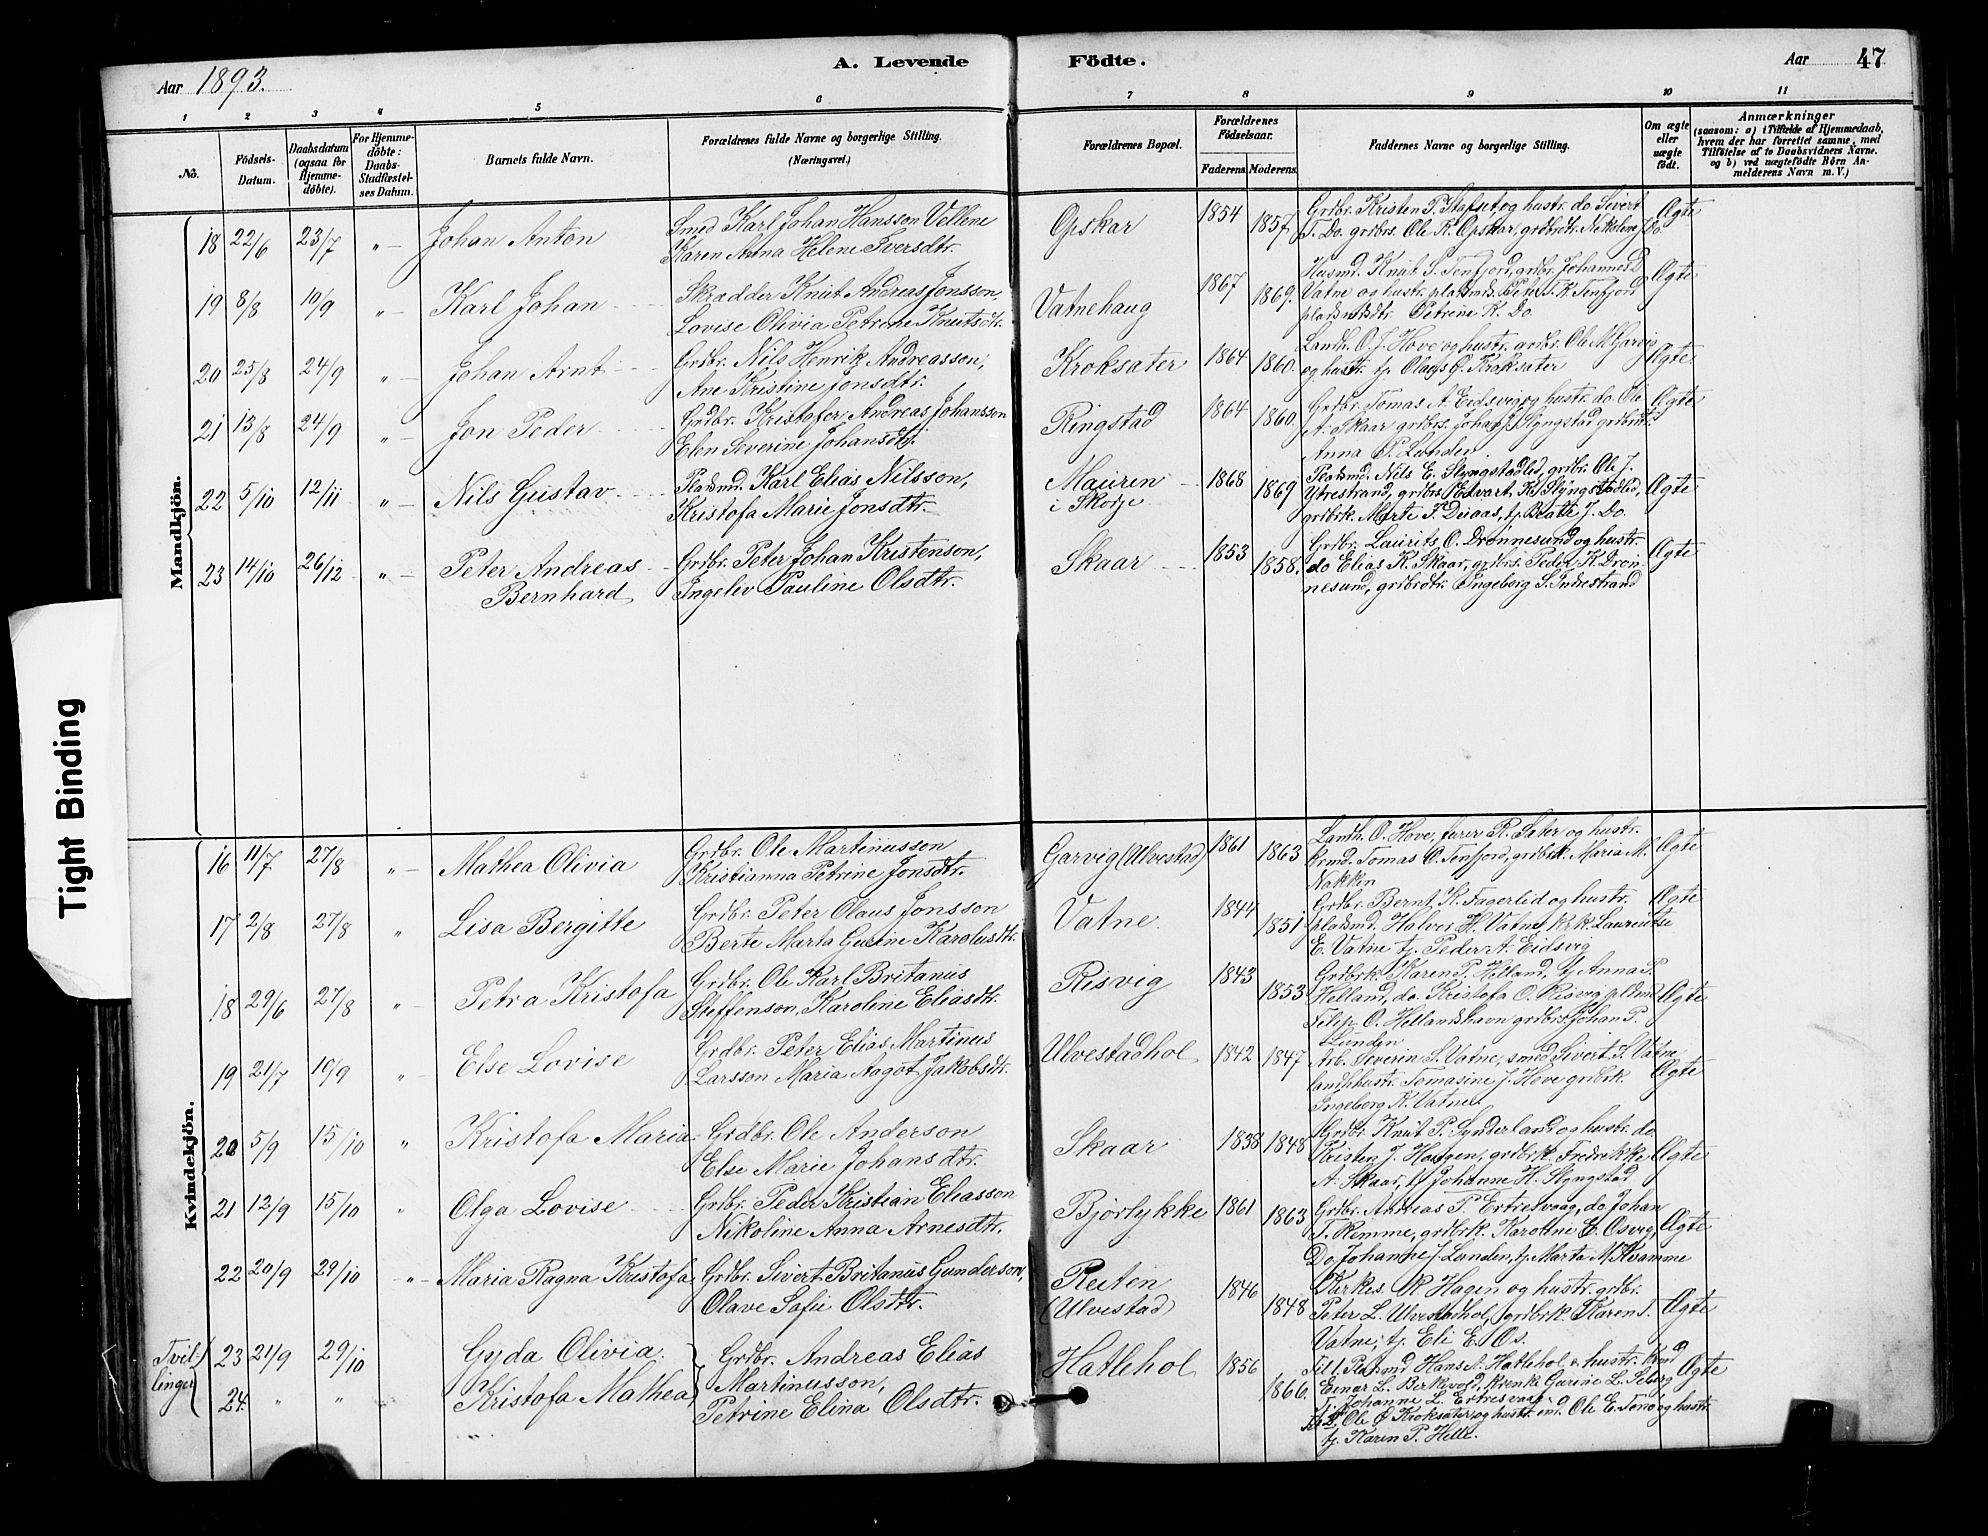 Aar 1893.
A. Levende Födte.
Aar 47
1 2 3 4 5 6 7 8 9 10 11
No.
Födsels-Datum.
Daabsdatum (ogsaa for Hjemme-döbte).
For Hjemme-döbte: Daabs-Stadfæstel-ses Datum.
Barnets fulde Navn.
Forældrenes fulde Navne og borgerlige Stilling. (Næringsvei.)
Forældrenes Bopæl.
Forældrenes Födselsaar.
Faderens Moderens
Faddernes Navne og borgerlige Stilling.
Om ægte eller uægte födt.
Anmærkninger
(saasom: a) i Tilfælde af Hjemmedaab, hvem der har forrettet samme, med Tilföielse af to Daabsvidners Navne. og b) ved uægtefödte Börn An-melderens Navn m. V.)
Mandkjön.
18 22/6 23/7 "— Johan Anton
Smed Karl Johan Hansson Vellene
Karen Anna Helene Iversdtr.
Opskar 1854 1857.
Grdbr. Kristen P. Stafset, og hustr. do Sivert
T. Do. grdbrs. Ole K. Opskar, grdbrdtr. Nikoline J. Do.
Ægte
19 8/8 10/9 "— Karl Johan
Skrædder Knut Andreas Jonsson,
Lovise Olivia Petrine Knutsdtr.
Vatnehaug 1867 1869.
Husmd. Knut S. Tenfjord, grdbr. Johannes D.
Vatne og hustr. pladsmds. Pete K. Tenfjord
pladsmdsdtr. Petrine K. Do
Ægte
20 25/8 24/9 "— Johan Arnt
Grdbr. Nils Henrik Andreasson,
Ane Kristine Jonsdtr.
Kroksater 1864 1860.
Landh. O. J. Hove og hustr. grdbr. Ole M. Garvig
og hustr. tj. Olaus O. Kroksater
Ægte
21 13/8 24/9 "— Jon Peder
Grdbr. Kristofer Andreas Johansson
Elen Severine Johansdtr.
Ringstad 1864 1860.
Grdbr. Tomas A. Eidsvig og hustr. do. Ole
A. Skaar grdbrs. Johan J. Slyngstad grdbrdtr.
Anna P. Lunden.
Ægte
22 5/10 12/11 "— Nils Gustav
Pladsmd. Karl Elias Nilsson,
Kristofa Marie Jonsdtr.
Mauren
i Skodje 1868 1869
Pladsmd. Nils E. Slyngstadlid, grdbr. Ole J.
Ytrestrand, grdbrs. Edvart K. Slyngstadlid,
grdbrk. Marte T. Disaas, tj. Beate J. Do.
Ægte
23 14/10 26/12 "— Peter Andreas
Bernhard
Grdbr. Peter Johan Kristenson,
Ingelev Pauline Olsdtr.
Skaar 1853 1858.
Grdbr. Laurits O. Drønnesund og hustr.
do Elias K. Skaar, grdbrs. Peder K. Drøn-
nesund, grdbrdtr. Ingeborg S. Indrestrand
Ægte
Kvindekjön.
16 11/7 27/8 "— Mathea Olivia
Grdbr. Ole Martinusson
Kristianna Petrine Jonsdtr.
Garvig (Ulvestad) 1861 1863
Landh. O. Hove, furer R. Sater og hustr.
Tomas O. Tenfjord, grdbrk. Maria M.
Nakken
Ægte
17 2/8 27/8 " Lisa Bergitte
Grdbr. Peter Olaus Jonsson
Berte Marta Gurine Karolusdtr.
Vatne. 1844 1851
Grdbr. Bernt H. Fagerlid og hustr.
pladsmd. Halvor H. Vatne,
E. Vatne tj. Peder A. Eidsvig
Ægte
18 29/6 27/8 "— Petra Kristofa
Grdbr. Ole Karl Britanus
Steffenson, Karoline Eliasdtr.
Risvig 1843 1853
Grdbrk. Karen P. Helland, tj Anna P.
Helland, do. Kristofa O. Risvig
Filip O. Hellandshavn grdbrs. Johan P.
Lunden
Ægte
19 21/7 10/9 "— Else Lovise
Grdbr. Peter Elias Martinus
Larsson Maria Aagot Jakobsdtr.
Ulvestadhol 1842 1847
Arb. Severin S. Vatne, smed Sivert S. Vatne
landhhustr. Tomasine J. Hove grdbrk.
Ingeborg K. Vatne
Ægte
20 5/9 15/10 " Kristofa Maria
Grdbr. Ole Anderson
Else Marie Johansdtr.
Skaar 1838 1848
Grdbr. Knut P. Synderland og hustr. do.
Kristen J. Haugen, grdbrk. Fredrikke
A. Skaar, tj Johanne H. Slyngstad
Ægte
21 12/9 15/10 " Olga Lovise
Grdbr. Peder Kristian Eliasson
Nikoline Anna Arnesdtr.
Bjørlykke 1861 1863
Grdbr. Andreas P. Ertresvaag, do. Johan
T. Remme, grdbrk. Karoline O. Osvig,
Do Johanne J. Lunden, tj. Marta M. Kvamme
Ægte
22 20/9 29/10 "— Maria Ragna Kristofa
Grdbr. Sivert Britanus Gunderson,
Olave Sofie Olsdtr.
Reiten
(Ulvestad) 1846 1848
Kirkes. K. Hagen og hustr. grdbr.
Peter L. Ulvestadhol, grdbrk. Karen I.
Vatne, tj. Eli E. Os.
Ægte
Tvil-
linger
23 21/9 29/10 Gyda Olivia.
24. " " Kristofa Mathea
Grdbr. Andreas Elias
Martinusson,
Petrine Elina Olsdtr.
Hatlehol 1856 1866.
Til 1. Pladsmd Hans A. Hatlehol & hustr.
Einar L. Birkevold, Gurine L.
Tj. Johanne L. Ertresvaag.
Til 2. Ole O Kroksater og hustr. Ole E. Tenno og hustr.
tj. Karen P. Helle.
Ægte
Tight Binding